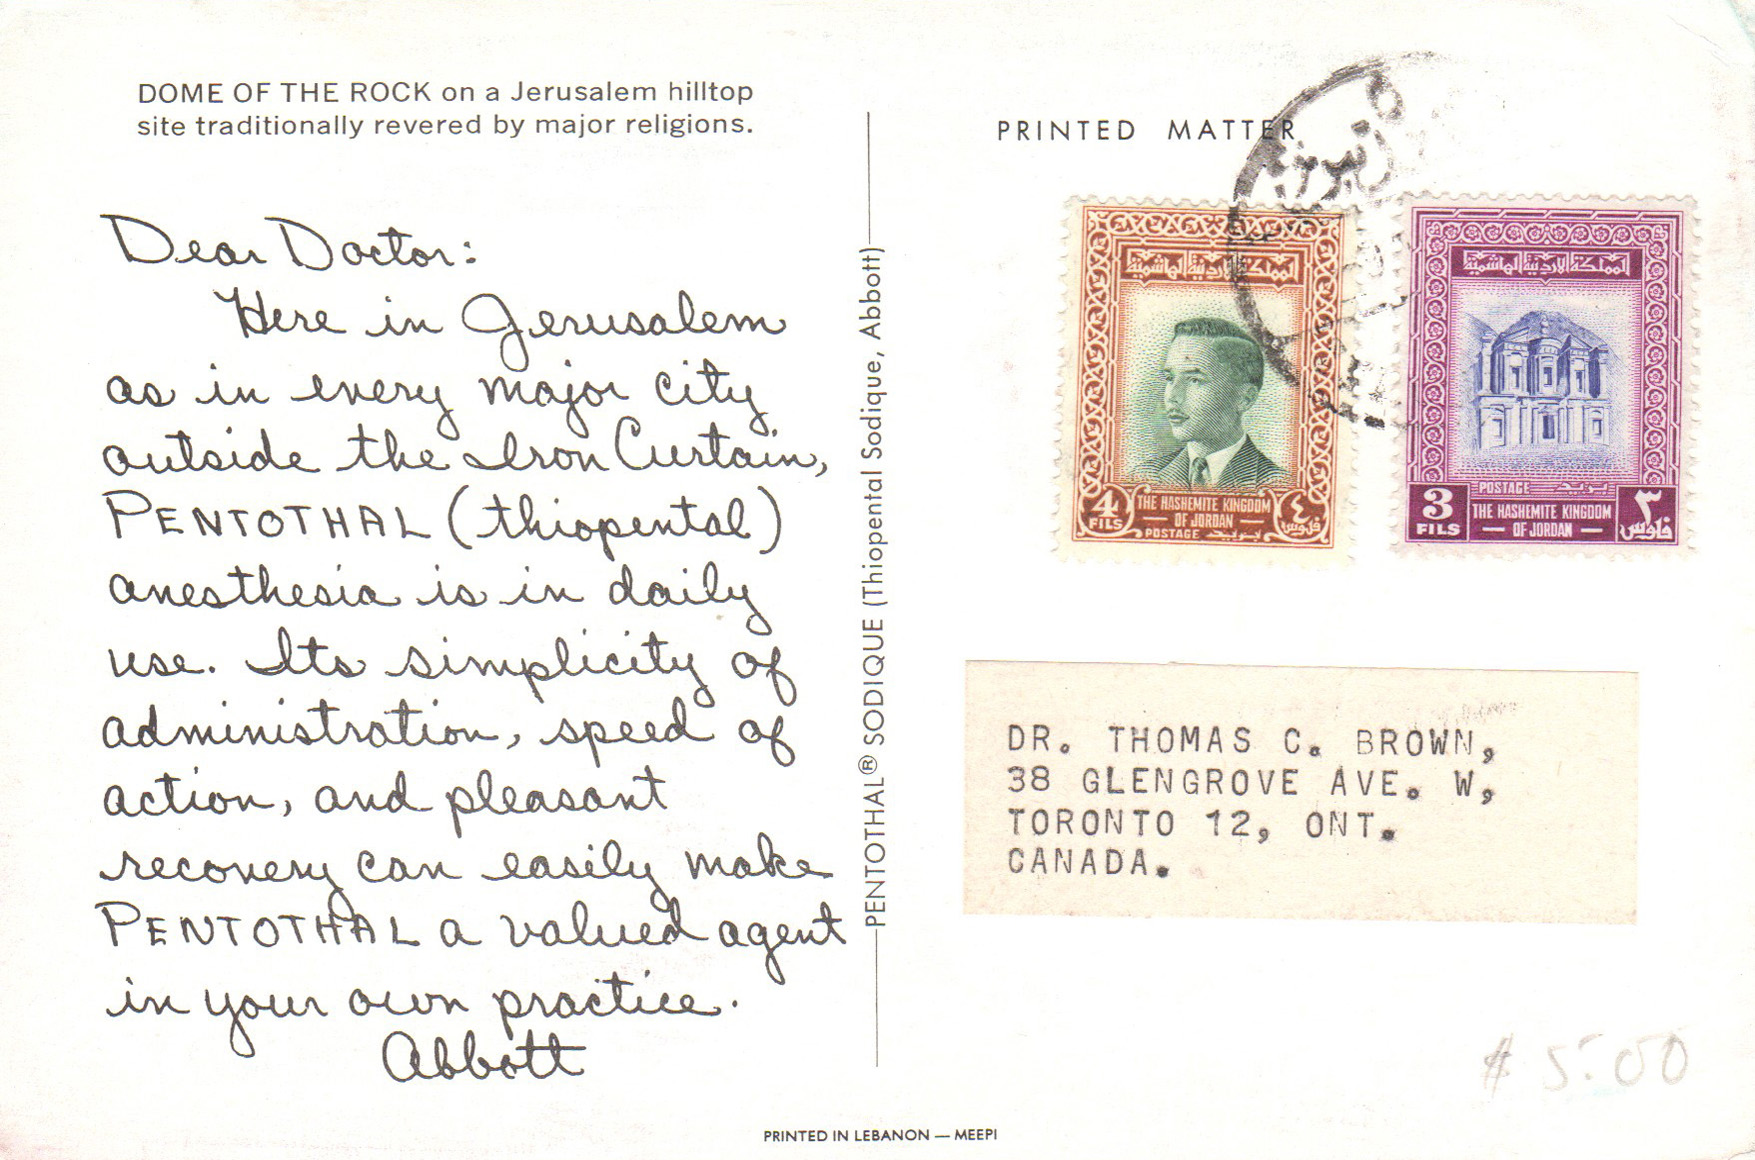 DOME OF THE ROCK on a Jerusalem hilltop
site traditionally revered by major religions.
Dear Doctor:
Here in Jerusalem
as in every major city
outside the Iron Curtain,
PENTOTHAL (thiopental)
anesthesia is in daily
use. Its simplicity of
administration, speed of
action, and pleasant
recovery can easily make
PENTOTHAL a valued agent
in your own practice.
Abbott
PENTOTHAL® SODIQUE (Thiopental Sodique, Abbott)
PRINTED MATTER
المملكة الاردنية الهاشمية
4
FILS
THE HASHEMITE KINGDOM
OF JORDAN
POSTAGE بريد
٤
فلوس
المملكة الاردنية الهاشمية
POSTAGE بريد
3
FILS
THE HASHEMITE KINGDOM
OF JORDAN
٣
فلوس
DR. THOMAS C. BROWN,
38 GLENGROVE AVE. W,
TORONTO 12, ONT.
CANADA.
$5.00
PRINTED IN LEBANON — MEEPI